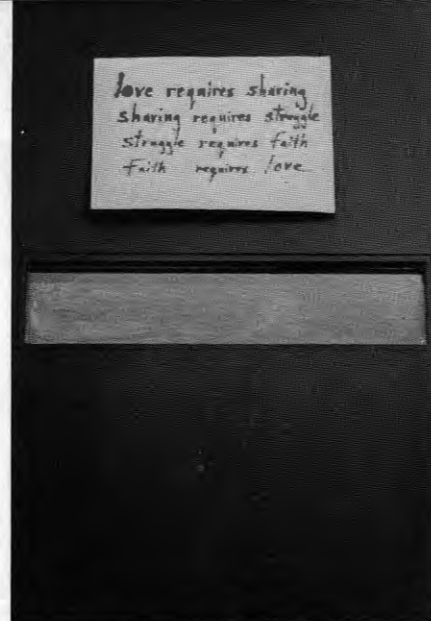 love requires sharing
sharing requires struggle
struggle requires faith
Faith requires love